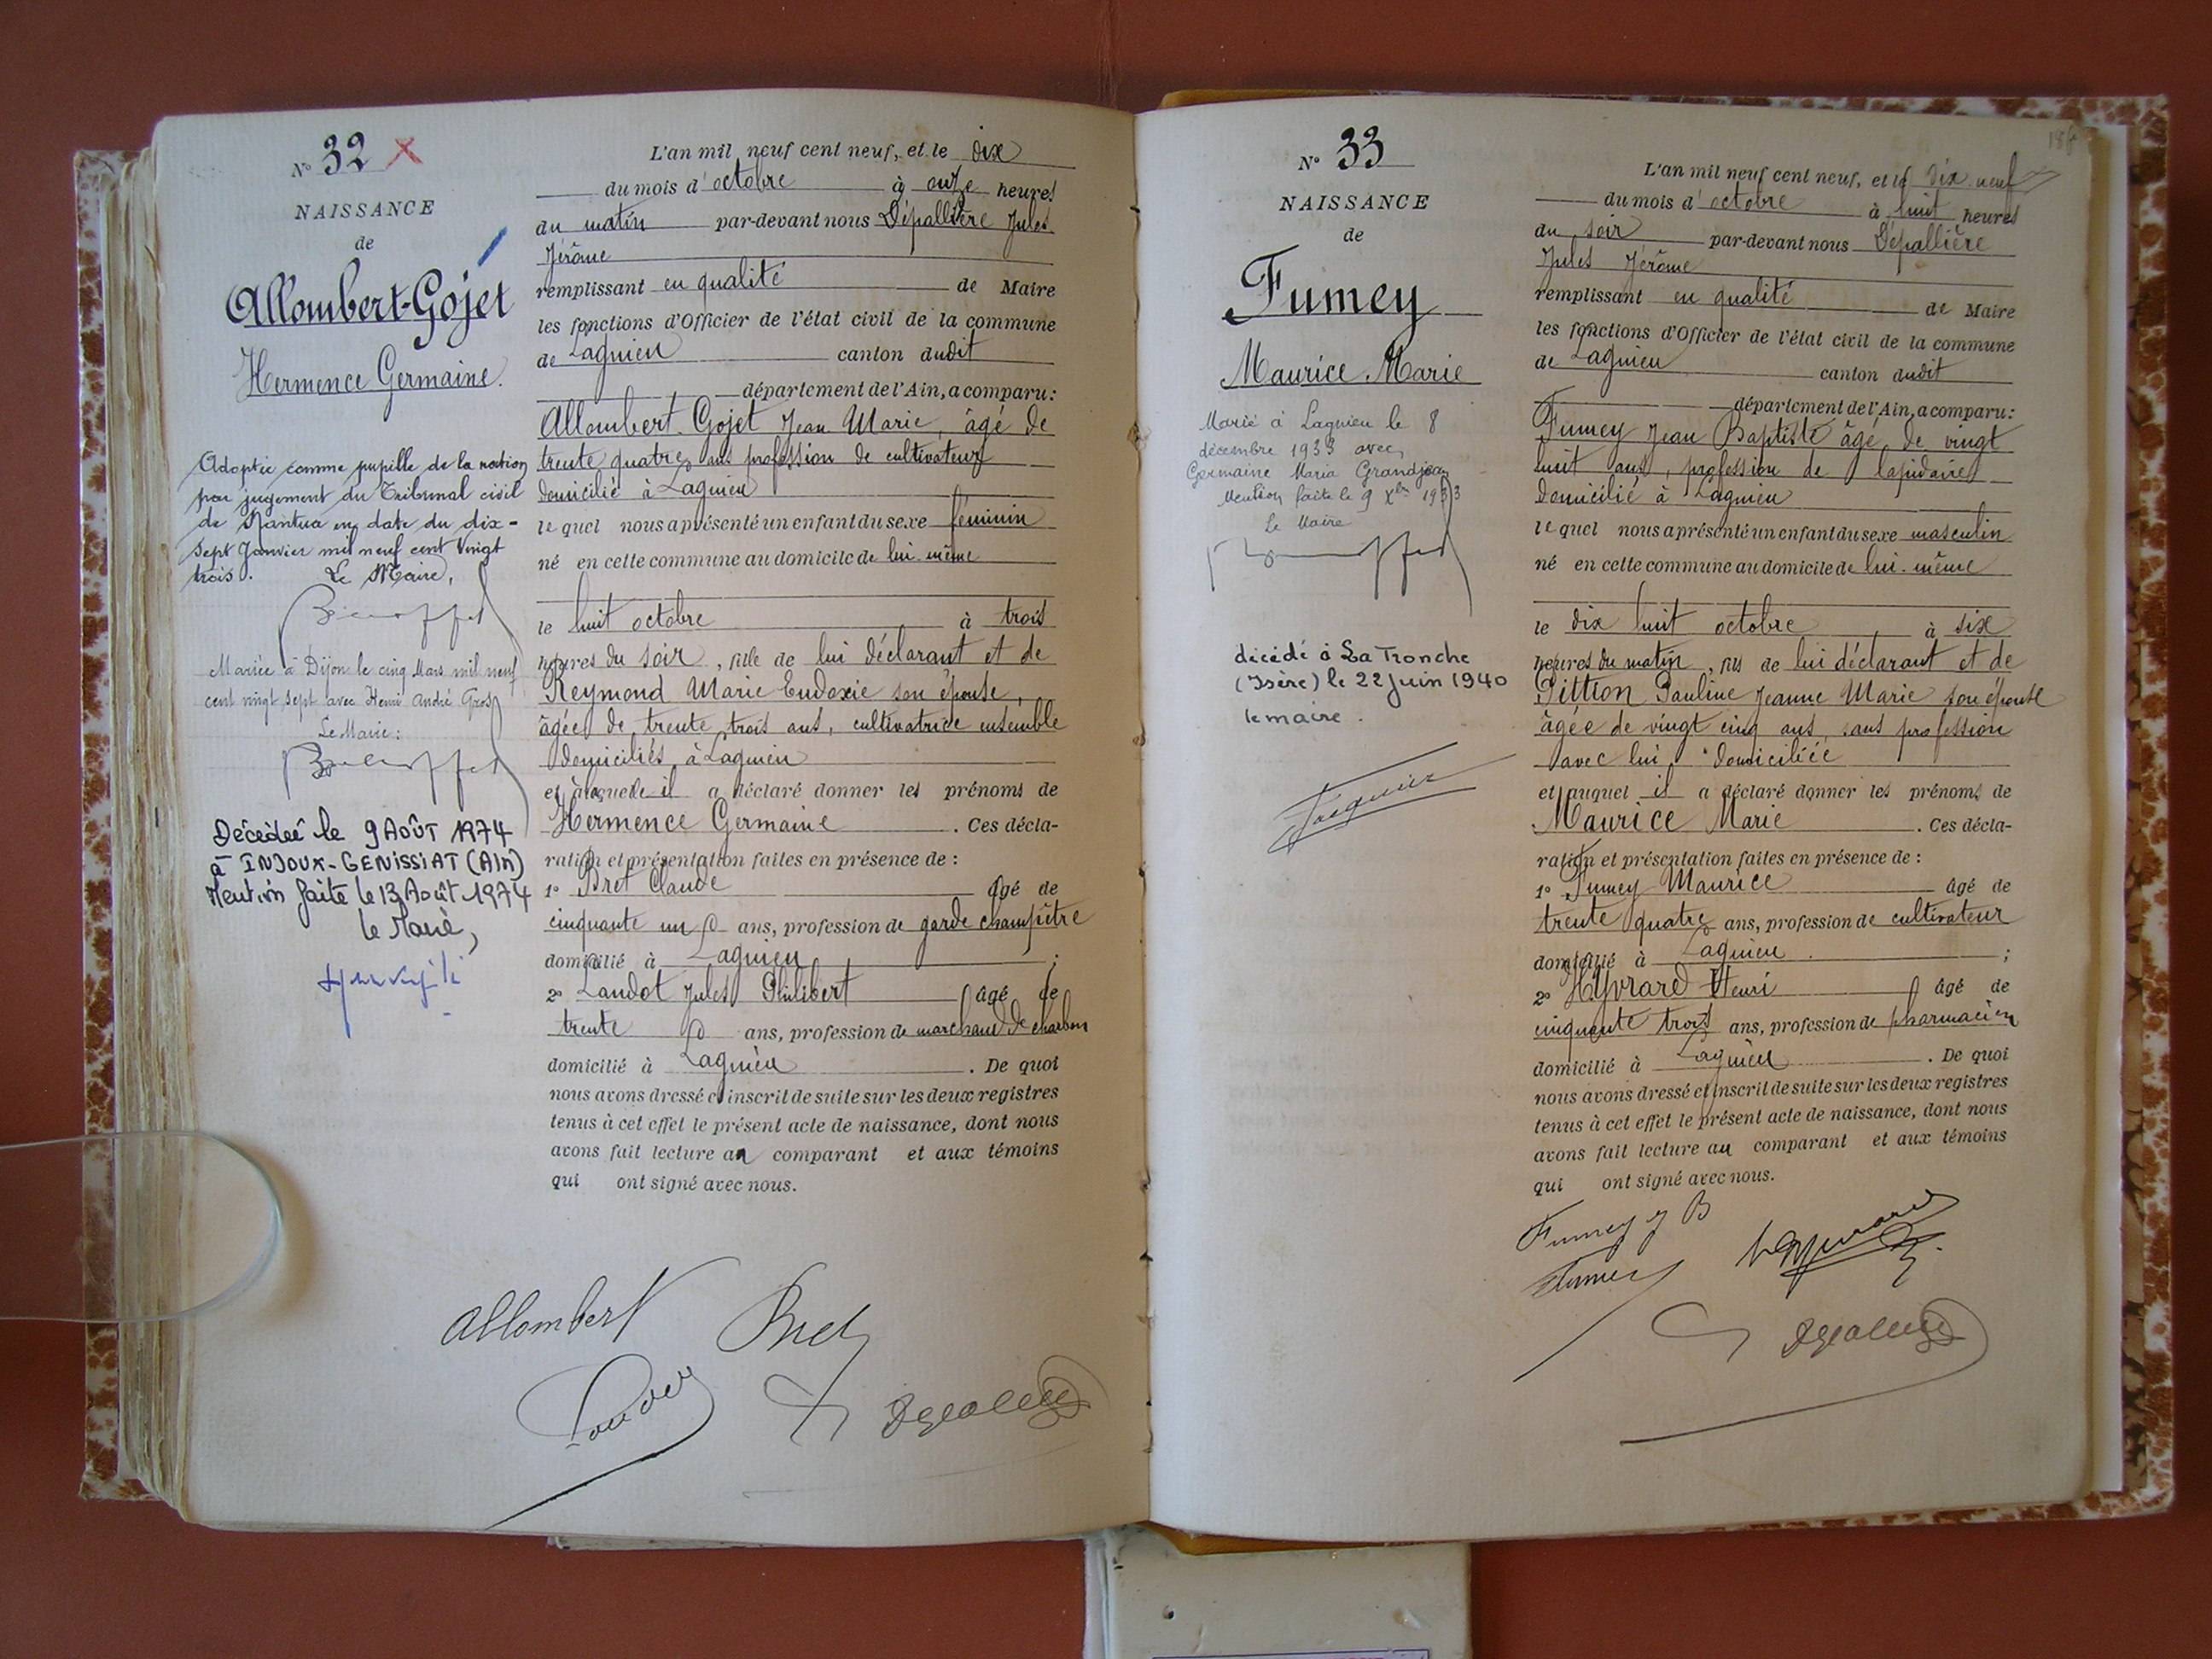 N° 32 x
NAISSANCE
de
Allombert-Gojet
Hermence Germaine.
Adoptée comme pupille de la nation
par jugement du Tribunal civil
de Nantua en date du dix-
sept Janvier mil neuf cent vingt
trois. Le Maire,
Mariée à Dijon le cinq Mars mil neuf
cent vingt sept avec Henri André Gros
Le Maire:
Décédée le 9 AOÛT 1974
à INJOUX-GENISSIAT (AIn)
Mention faite le 13 Août 1974
le Maire,
L'an mil neuf cent neuf, et le dix
du mois d'octobre à onze heures
du matin par-devant nous Dépallière Jules
Jérôme
remplissant en qualité de Maire
les fonctions d'Officier de l'état civil de la commune
de Lagnieu canton dudit
département de l'Ain, a comparu:
Allombert-Gojet Jean Marie, âgé de
trente quatre ans profession de cultivateur
domicilié à Lagnieu
lequel nous a présenté un enfant du sexe féminin
né en cette commune au domicile de lui-même
le huit octobre à trois
heures du soir, fille de lui déclarant et de
Reymond Marie Eudoxie son épouse,
âgée de trente trois ans, cultivatrice ensemble
domiciliés à Lagnieu
et à laquelle il a déclaré donner les prénoms de
Hermence Germaine. Ces décla-
ration et présentation faites en présence de :
1° Bret Claude âgé de
cinquante un ans, profession de garde champêtre
domicilié à Lagnieu ;
2° Landot Jules Philibert âgé de
trente ans, profession de marchand de charbon
domicilié à Lagnieu. De quoi
nous avons dressé et inscrit de suite sur les deux registres
tenus à cet effet le présent acte de naissance, dont nous
avons fait lecture au comparant et aux témoins
qui ont signé avec nous.
Allombert Bret
N° 33
NAISSANCE
de
Fumey
Maurice Marie
Marié à Lagnieu le 8
décembre 1933 avec
Germaine Maria Grandjean
Mention faite le 9 Xbre 1933
Le Maire
décédé à La Tronche
(Isère) le 22 Juin 1940
le maire.
L'an mil neuf cent neuf, et le dix neuf
du mois d'octobre à huit heures
du soir par-devant nous Dépallière
Jules Jérôme
remplissant en qualité de Maire
les fonctions d'Officier de l'état civil de la commune
de Lagnieu canton dudit
département de l'Ain, a comparu:
Fumey Jean Baptiste âgé de vingt
huit ans, profession de lapidaire
domicilié à Lagnieu
lequel nous a présenté un enfant du sexe masculin
né en cette commune au domicile de lui-même
le dix huit octobre à six
heures du matin, fils de lui déclarant et de
Pittion Pauline Jeanne Marie son épouse
âgée de vingt cinq ans, sans profession
avec lui domiciliée
et auquel il a déclaré donner les prénoms de
Maurice Marie. Ces décla-
ration et présentation faites en présence de :
1° Fumey Maurice âgé de
trente quatre ans, profession de cultivateur
domicilié à Lagnieu ;
2° Hyvrard Henri âgé de
cinquante trois ans, profession de pharmacien
domicilié à Lagnieu. De quoi
nous avons dressé et inscrit de suite sur les deux registres
tenus à cet effet le présent acte de naissance, dont nous
avons fait lecture au comparant et aux témoins
qui ont signé avec nous.
Fumey J B
Fumey